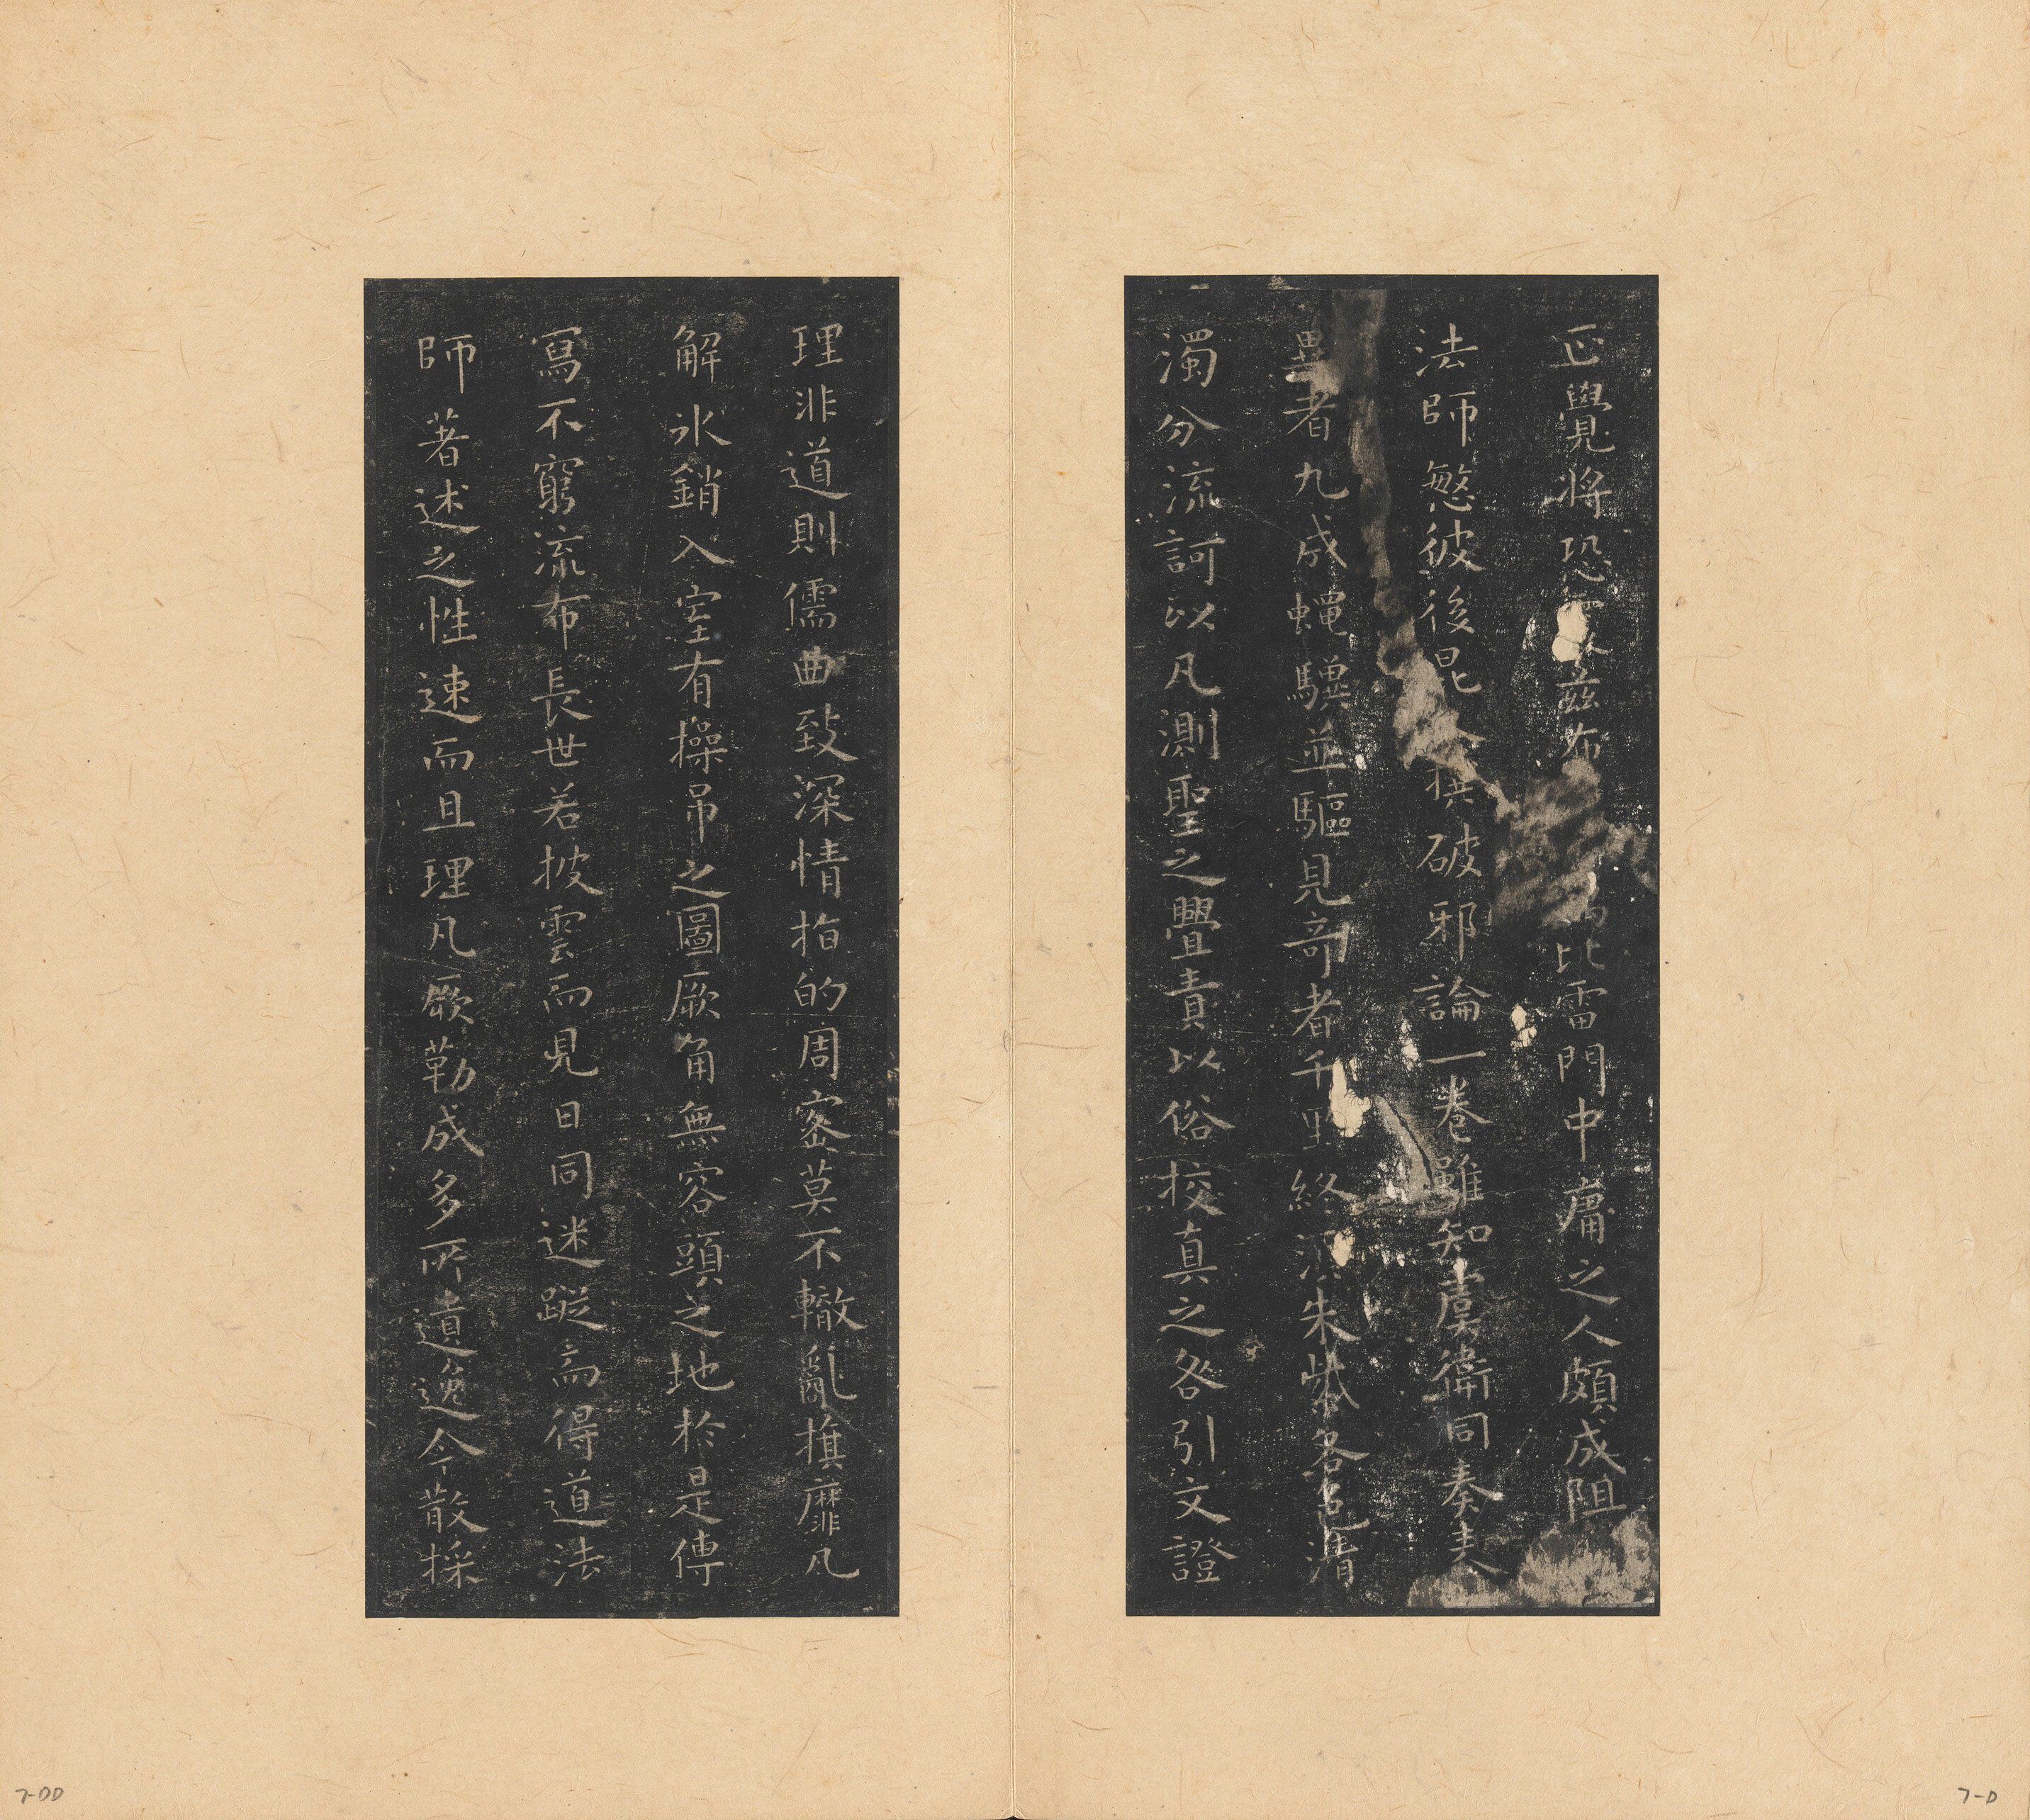 正覺將恐 茲布 比雷門中庸之人頗成阻
法師慜彼後昆 撰破邪論一卷雖知虞衛同奏表
異者九成蠅驥並驅見奇者千里終須朱紫各色清
濁分流訶以凡測聖之舋責以俗校真之咎引文證
理非道則儒曲致深情指的周密莫不轍亂旗靡凡
解氷銷入室有操吊之圖厥角無容頭之地於是傳
寫不窮流布長世若披雲而見日同迷蹤而得道法
師著述之性速而且理凡厥勒成多所遺逸今散採
7-D
7-DD